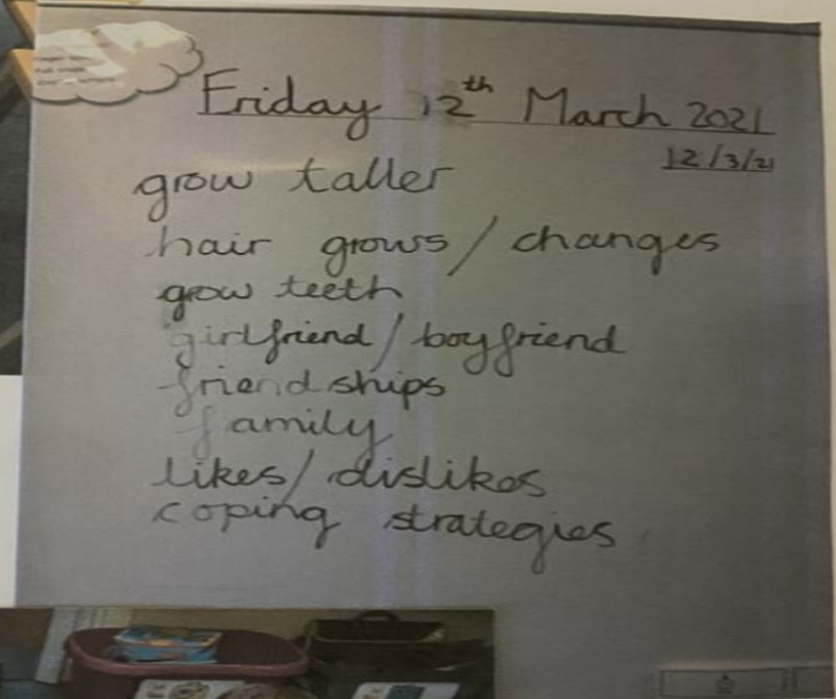 Friday 12th March 2021
12/3/21
grow taller
hair grows / changes
grow teeth
girlfriend / boyfriend
friendships
family
likes / dislikes
coping strategies